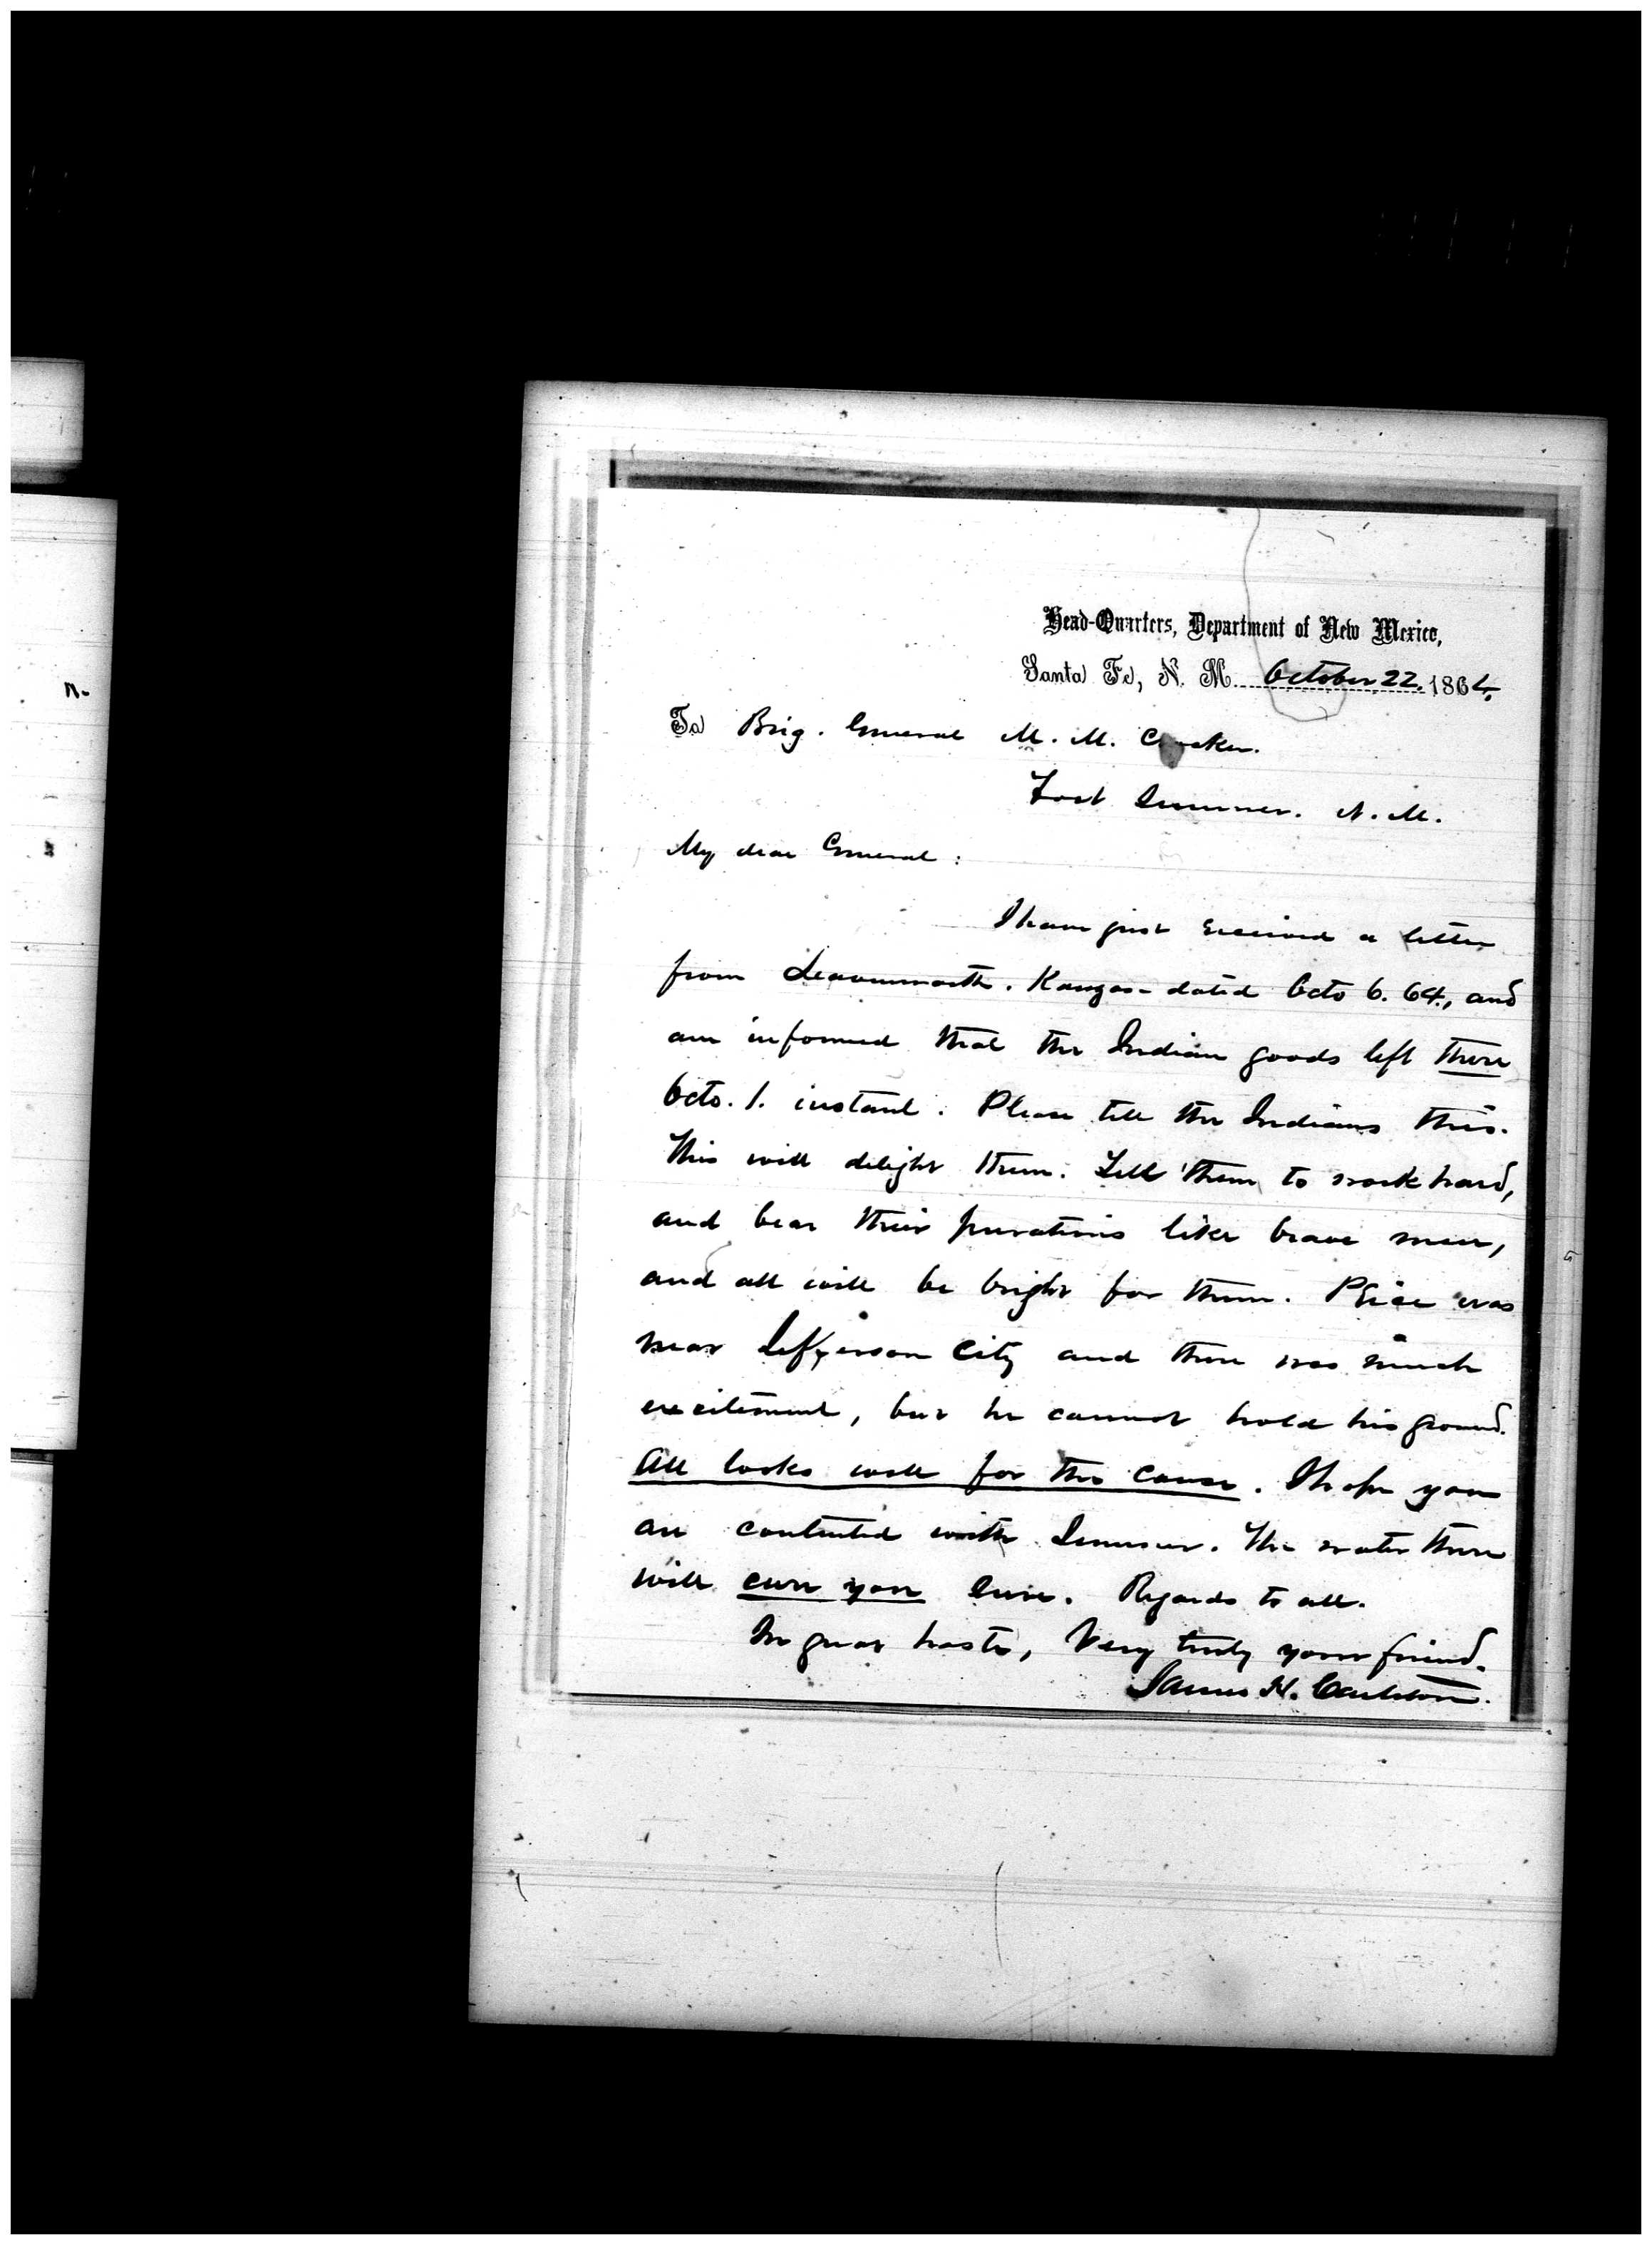 Head-Quarters, Department of New Mexico,
Santa Fe, N. M. October 22. 1864.
To Brig. General M. M. Crocker.
Fort Sumner. N. M.
My dear General:
I have just received a letter
from Leavenworth. Kansas - dated Octo 6. 64., and
am informed that the Indian goods left there
Octo. 1. instant. Please tell the Indians this.
This will delight them. Tell them to work hard,
and bear their privations like brave men,
and all will be bright for them. Price was
near Jefferson City and there was much
excitement, but he cannot hold his ground.
All looks well for the cause. I hope you
are contented with Sumner. The water there
will cure you sure. Regards to all.
In great haste, Very truly your friend.
James H. Carleton.
n-